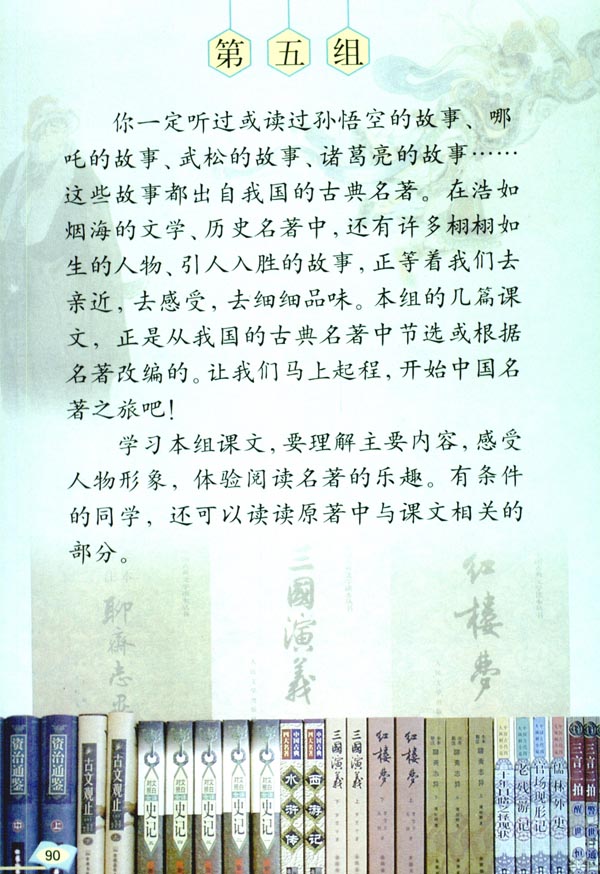 第五组
你一定听过或读过孙悟空的故事、哪
吒的故事、武松的故事、诸葛亮的故事……
这些故事都出自我国的古典名著。在浩如
烟海的文学、历史名著中，还有许多栩栩如
生的人物、引人入胜的故事，正等着我们去
亲近，去感受，去细细品味。本组的几篇课
文，正是从我国的古典名著中节选或根据
名著改编的。让我们马上起程，开始中国名
著之旅吧！
学习本组课文，要理解主要内容，感受
人物形象，体验阅读名著的乐趣。有条件
的同学，还可以读读原著中与课文相关的
部分。
聊斋志异
三國演義
红楼夢
资治通鉴
中
资治通鉴
上
古文观止
下
古文观止
上
史记
史记
史记
史记
史记
中国古典
四大名著
水浒传
中国古典
四大名著
西游记
三國演義
下
三國演義
上
红楼夢
下
红楼夢
上
老残游记
官场现形记
儒林外史
三言二拍
醒世恒
三言二拍
90